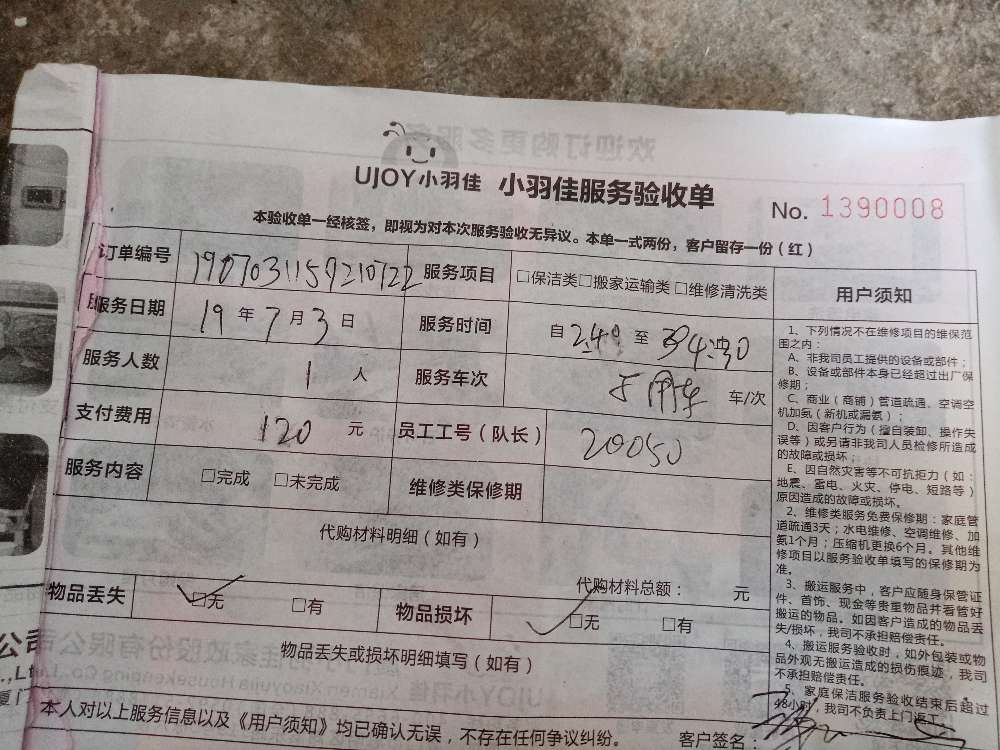 UJOY小羽佳 小羽佳服务验收单
No. 1390008
本验收单一经核签，即视为对本次服务验收无异议。本单一式两份，客户留存一份（红）
订单编号 1907031159210722 服务项目 □保洁类□搬家运输类 □维修清洗类
服务日期 19 年 7 月 3 日 服务时间 自 至
服务人数 1 人 服务车次 车/次
支付费用 120 元 员工工号（队长） 20050
服务内容 □完成 □未完成 维修类保修期
代购材料明细（如有）
代购材料总额： 元
物品丢失 □无 □有 物品损坏 □无 □有
物品丢失或损坏明细填写（如有）
本人对以上服务信息以及《用户须知》均已确认无误，不存在任何争议纠纷。
客户签名：
用户须知
1、下列情况不在维修项目的维保范
围之内：
A、非我司员工提供的设备或部件；
B、设备或部件本身已经超过出厂保
修期；
C、商业（商铺）管道疏通、空调空
机加氨（新机或漏氨）；
D、因客户行为（擅自装卸、操作失
误等）或另请非我司人员检修所造成
的故障或损坏；
E、因自然灾害等不可抗拒力（如：
地震、雷电、火灾、停电、短路等）
原因造成的故障或损坏。
2、维修类服务免费保修期：家庭管
道疏通3天；水电维修、空调维修、加
氨1个月；压缩机更换6个月。其他维
修项目以服务验收单填写的保修期为
准。
3、搬运服务中，客户应随身保管证
件、首饰、现金等贵重物品并看管好
搬运的物品。如因客户造成的物品丢
失/损坏，我司不承担赔偿责任。
4、搬运服务验收时，如外包装或物
品外观无搬运造成的损伤痕迹，我司
不承担赔偿责任。
5、家庭保洁服务验收结束后超过
48小时，我司不负责上门返工。